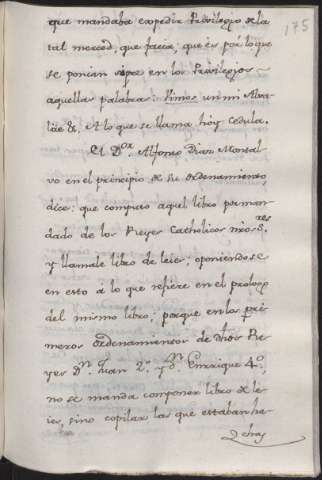 175
que mandaba expedir Privilegio de la
tal merced, que facia; que es por lo que
se ponian sipre en los Privilegios
aquellas palabras: Vimos un mi Alva
la de &c, et lo que se llama hoy cedula.
El Dor. Alfonso Diaz Montal
vo en el principio de su ordenamiento,
dice: que compuso aquel libro por man
dado de los Reyes Catholicos nros Sres
y llamale libro de leies; oponiendose
en esto á lo que refiere en el prologo
del mismo libro; porque en los pri
meros ordenamientos de dhos Re
yes Dn Juan 2.º y Dn Enrrique 4.º,
no se manda componer libro de le
ies, sino copilar las que estaban he
chas